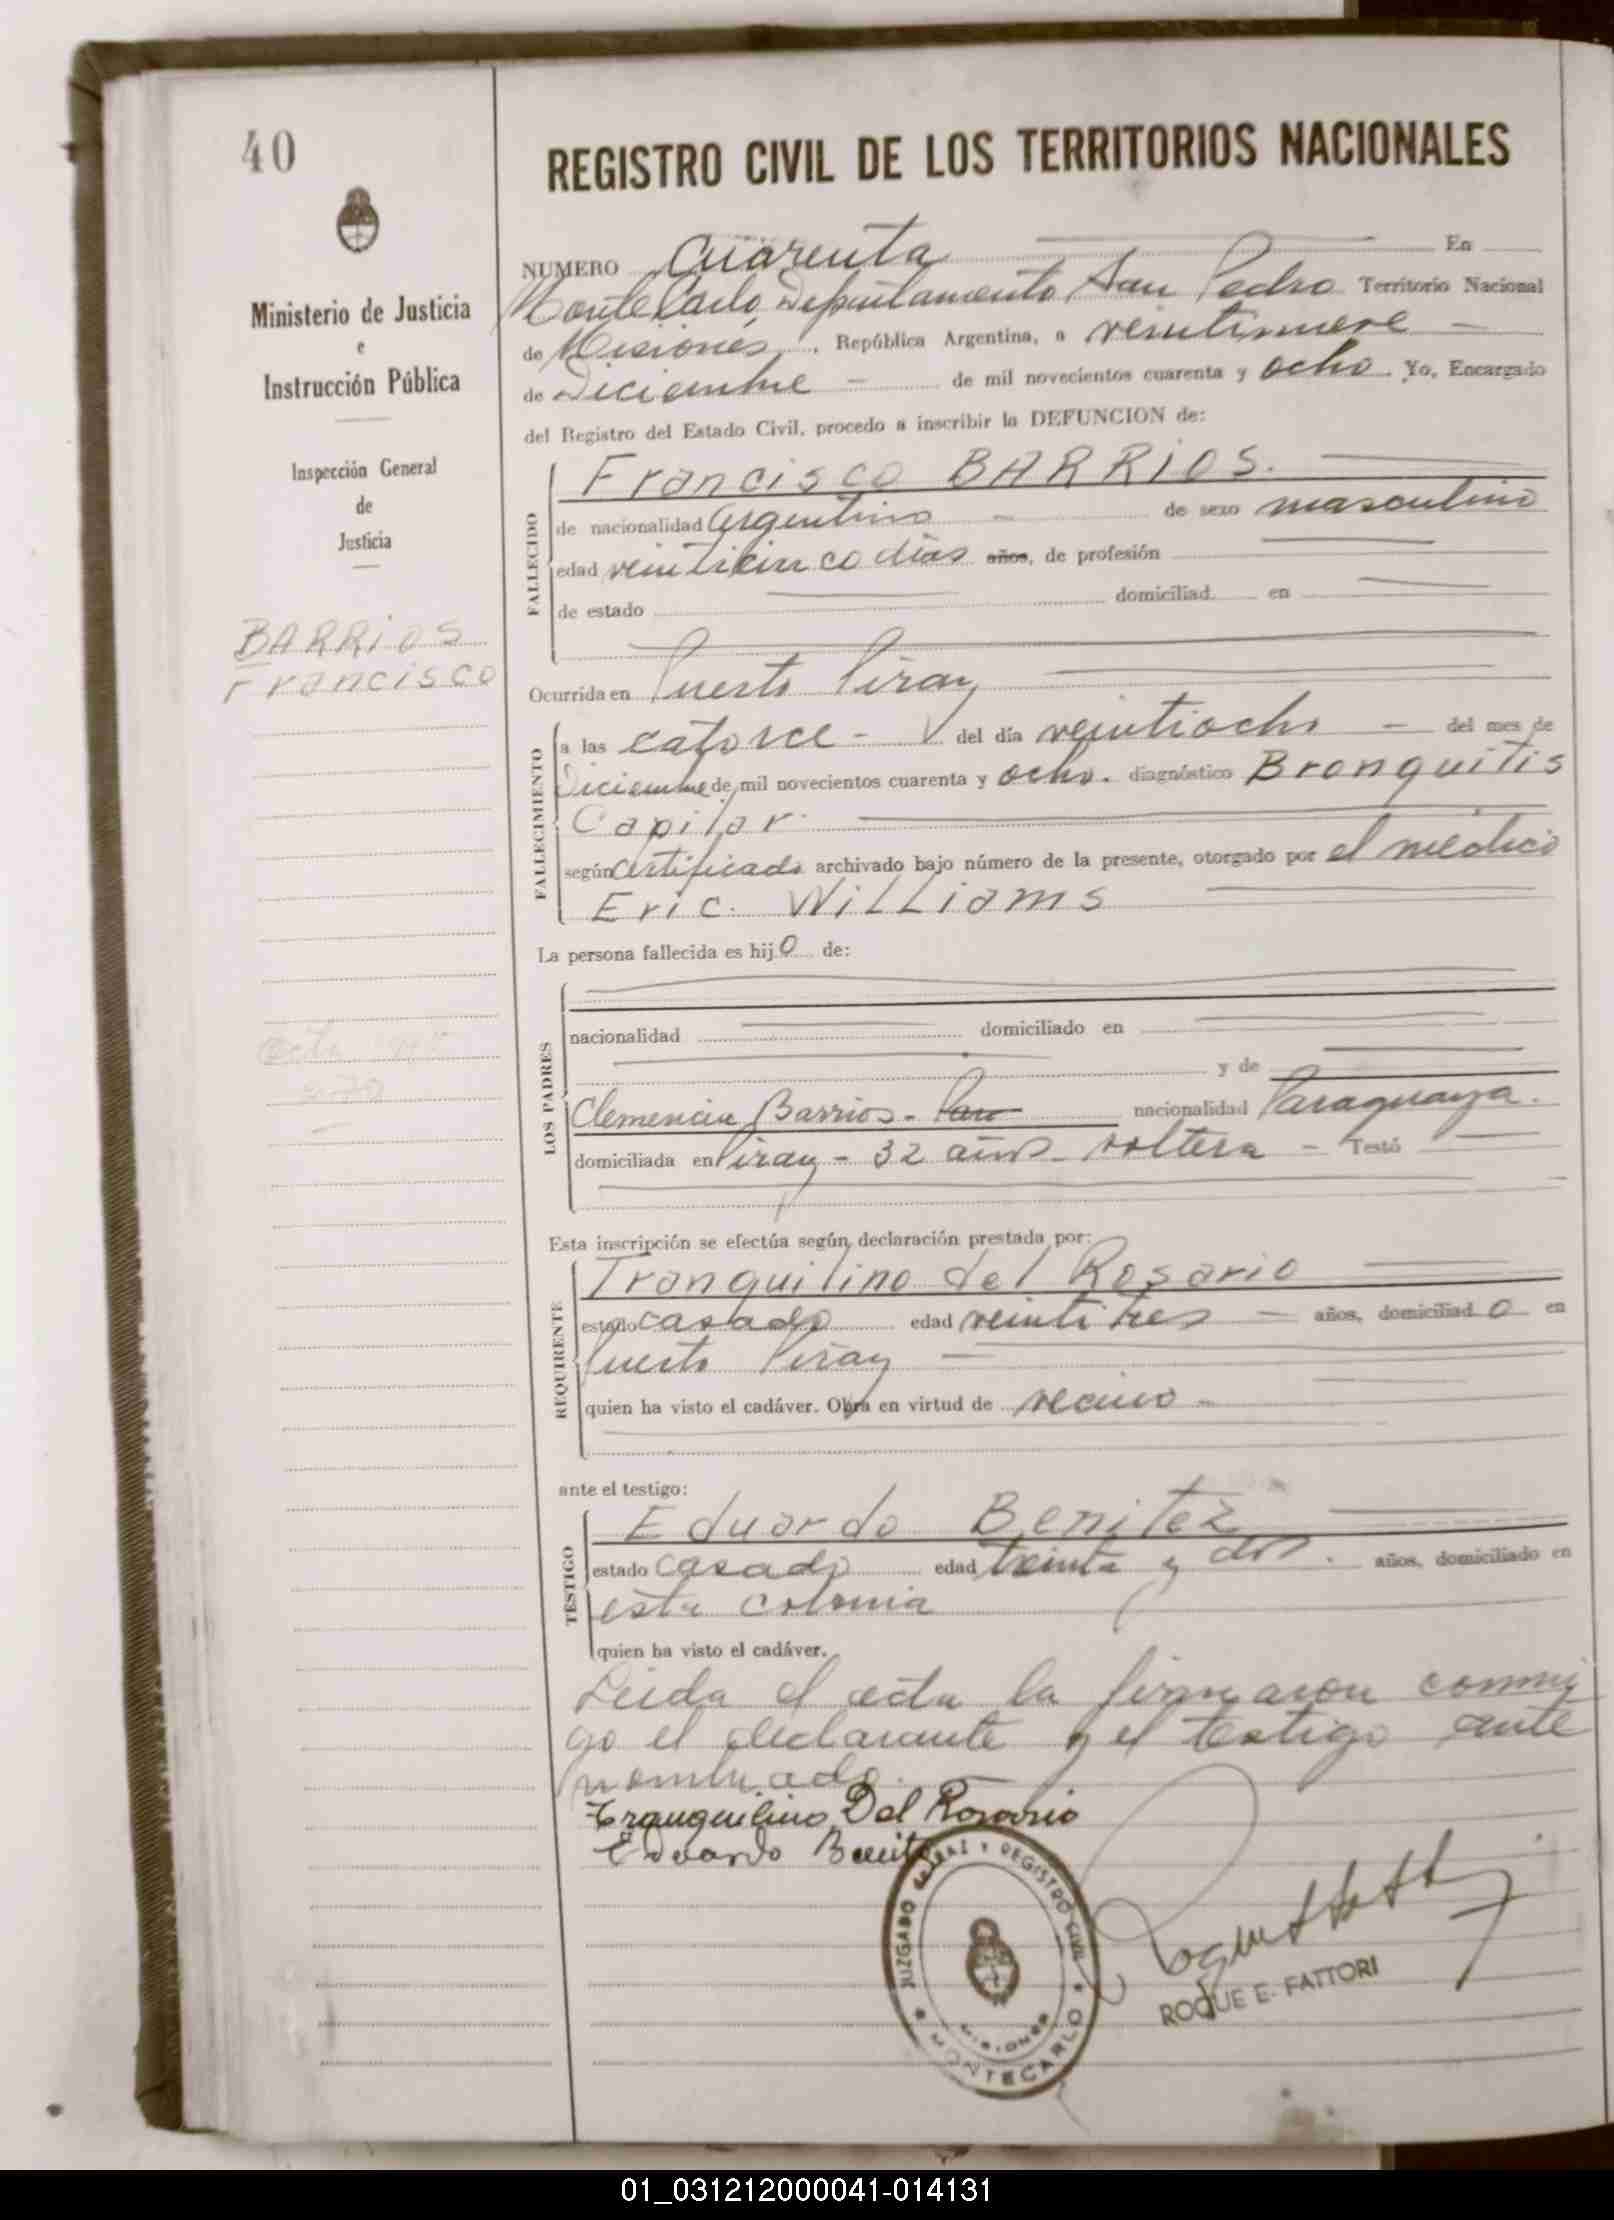 40
REGISTRO CIVIL DE LOS TERRITORIOS NACIONALES
Ministerio de Justicia
e
Instrucción Pública
Inspección General
de
Justicia
BARRIOS
Francisco
NUMERO Cuarenta En
Monte Carlo, Departamento San Pedro Territorio Nacional
de Misiones, República Argentina, a veintinueve
de Diciembre de mil novecientos cuarenta y ocho. Yo, Encargado
del Registro del Estado Civil, procedo a inscribir la DEFUNCION de:
FALLECIDO
Francisco BARRIOS.
de nacionalidad Argentino de sexo masculino
edad veinticinco días años, de profesión
de estado domiciliad en
Ocurrida en Puerto Piray
FALLECIMIENTO
a las catorce - del día veintiocho - del mes de
Diciembre de mil novecientos cuarenta y ocho. diagnóstico Bronquitis
Capilar.
según certificado archivado bajo número de la presente, otorgado por el médico
Eric. Williams
La persona fallecida es hijo de:
LOS PADRES
nacionalidad domiciliado en
y de
Clemencia Barrios - Par nacionalidad Paraguaya.
domiciliada en Piray - 32 años - soltera - Testó
Esta inscripción se efectúa según declaración prestada por:
REQUIRENTE
Tranquilino del Rosario
estado casado edad veintitres - años, domiciliado en
Puerto Piray
quien ha visto el cadáver. Obra en virtud de vecino -
ante el testigo:
TESTIGO
Eduardo Benitez
estado casado edad treinta y dos. años, domiciliado en
esta colonia
quien ha visto el cadáver.
Leida el acta la firmaron conmi
go el declarante y el testigo ante
nombrado.
Tranquilino Del Rosario
Eduardo Benitez
JUZGADO DE PAZ Y REGISTRO CIVIL
MISIONES
MONTECARLO
ROQUE E. FATTORI
01_031212000041-014131